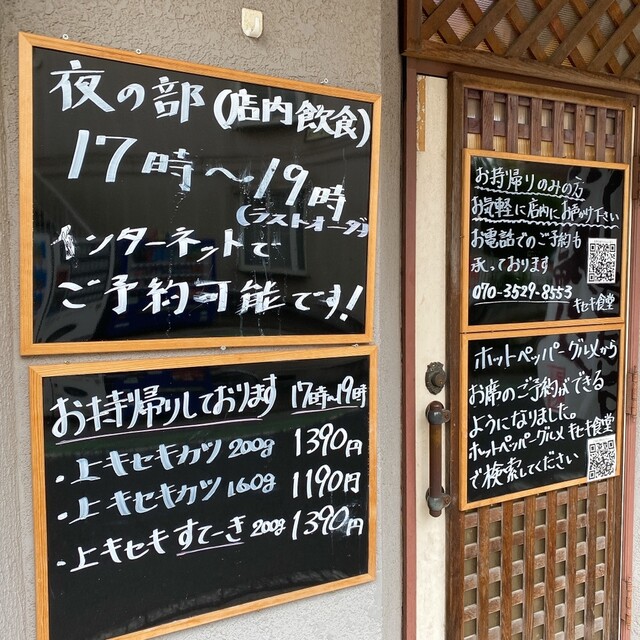 夜の部(店内飲食)
17時〜19時
(ラストオーダ)
インターネットで
ご予約可能です!
お持帰りしております 17時〜19時
・上キセキカツ 200g 1390円
・上キセキカツ 160g 1190円
・上キセキすてーき 200g 1390円
お持帰りのみの方
お気軽に店内にお声がけ下さい
お電話でのご予約も
承っております
070-3529-8553 キセキ食堂
ホットペッパーグルメから
お席のご予約ができる
ようになりました。
ホットペッパーグルメ キセキ食堂
で検索してください